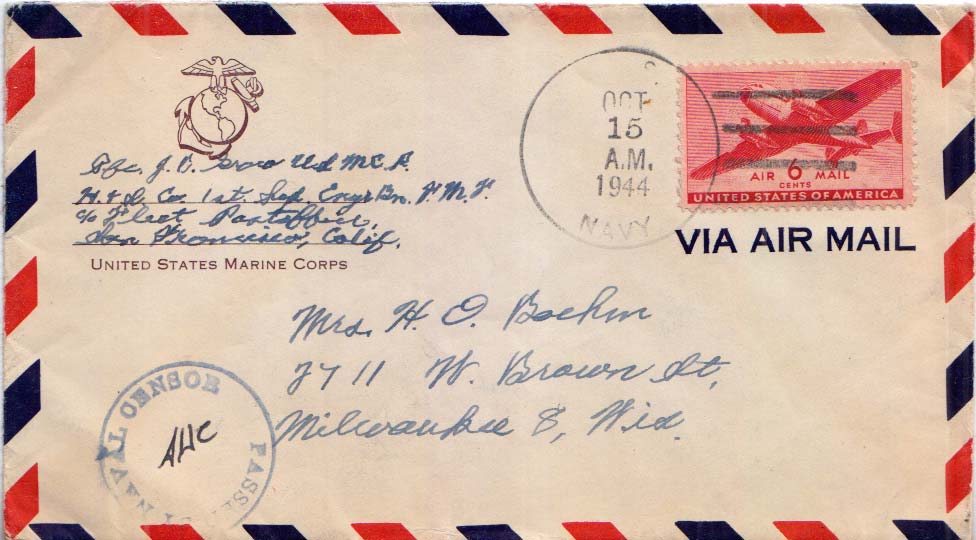 Pfc. J. D. U.S.M.C.R.
H & S. Co. 1st. Sep. Engr Bn. F.M.F.
c/o Fleet Postoffice
San Francisco, Calif.
UNITED STATES MARINE CORPS
OCT
15
A.M.
1944
NAVY
AIR 6 MAIL
CENTS
UNITED STATES OF AMERICA
VIA AIR MAIL
Mrs. H. O. Boehm
2711 W. Brown St,
Milwaukee 8, Wis.
PASSED BY NAVAL CENSOR
AHC